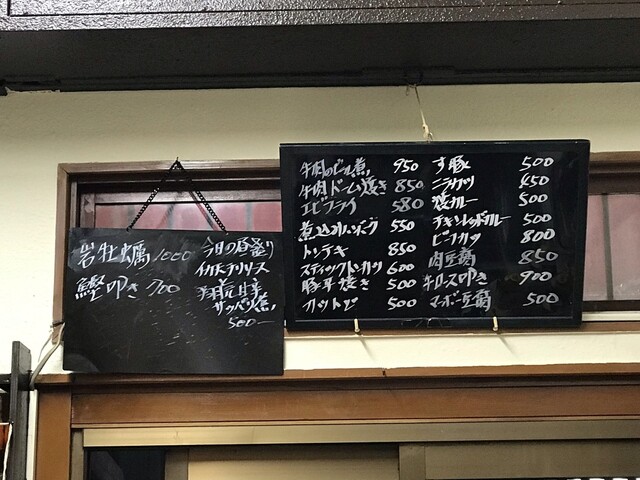 岩牡蠣 1000
鰹叩き 700
今日の昼盛り
サッパリ煮
500-
牛肉のビール煮 950
牛肉ドーム焼き 850
エビフライ 580
煮込みハンバーグ 550
トンテキ 850
スティックトンカツ 600
豚平焼き 500
カツトジ 500
す豚 500
ニラカツ 450
焼カレー 500
チキンレッドカレー 500
ビーフカツ 800
肉豆腐 850
牛ロース叩き 900
マーボ豆腐 500